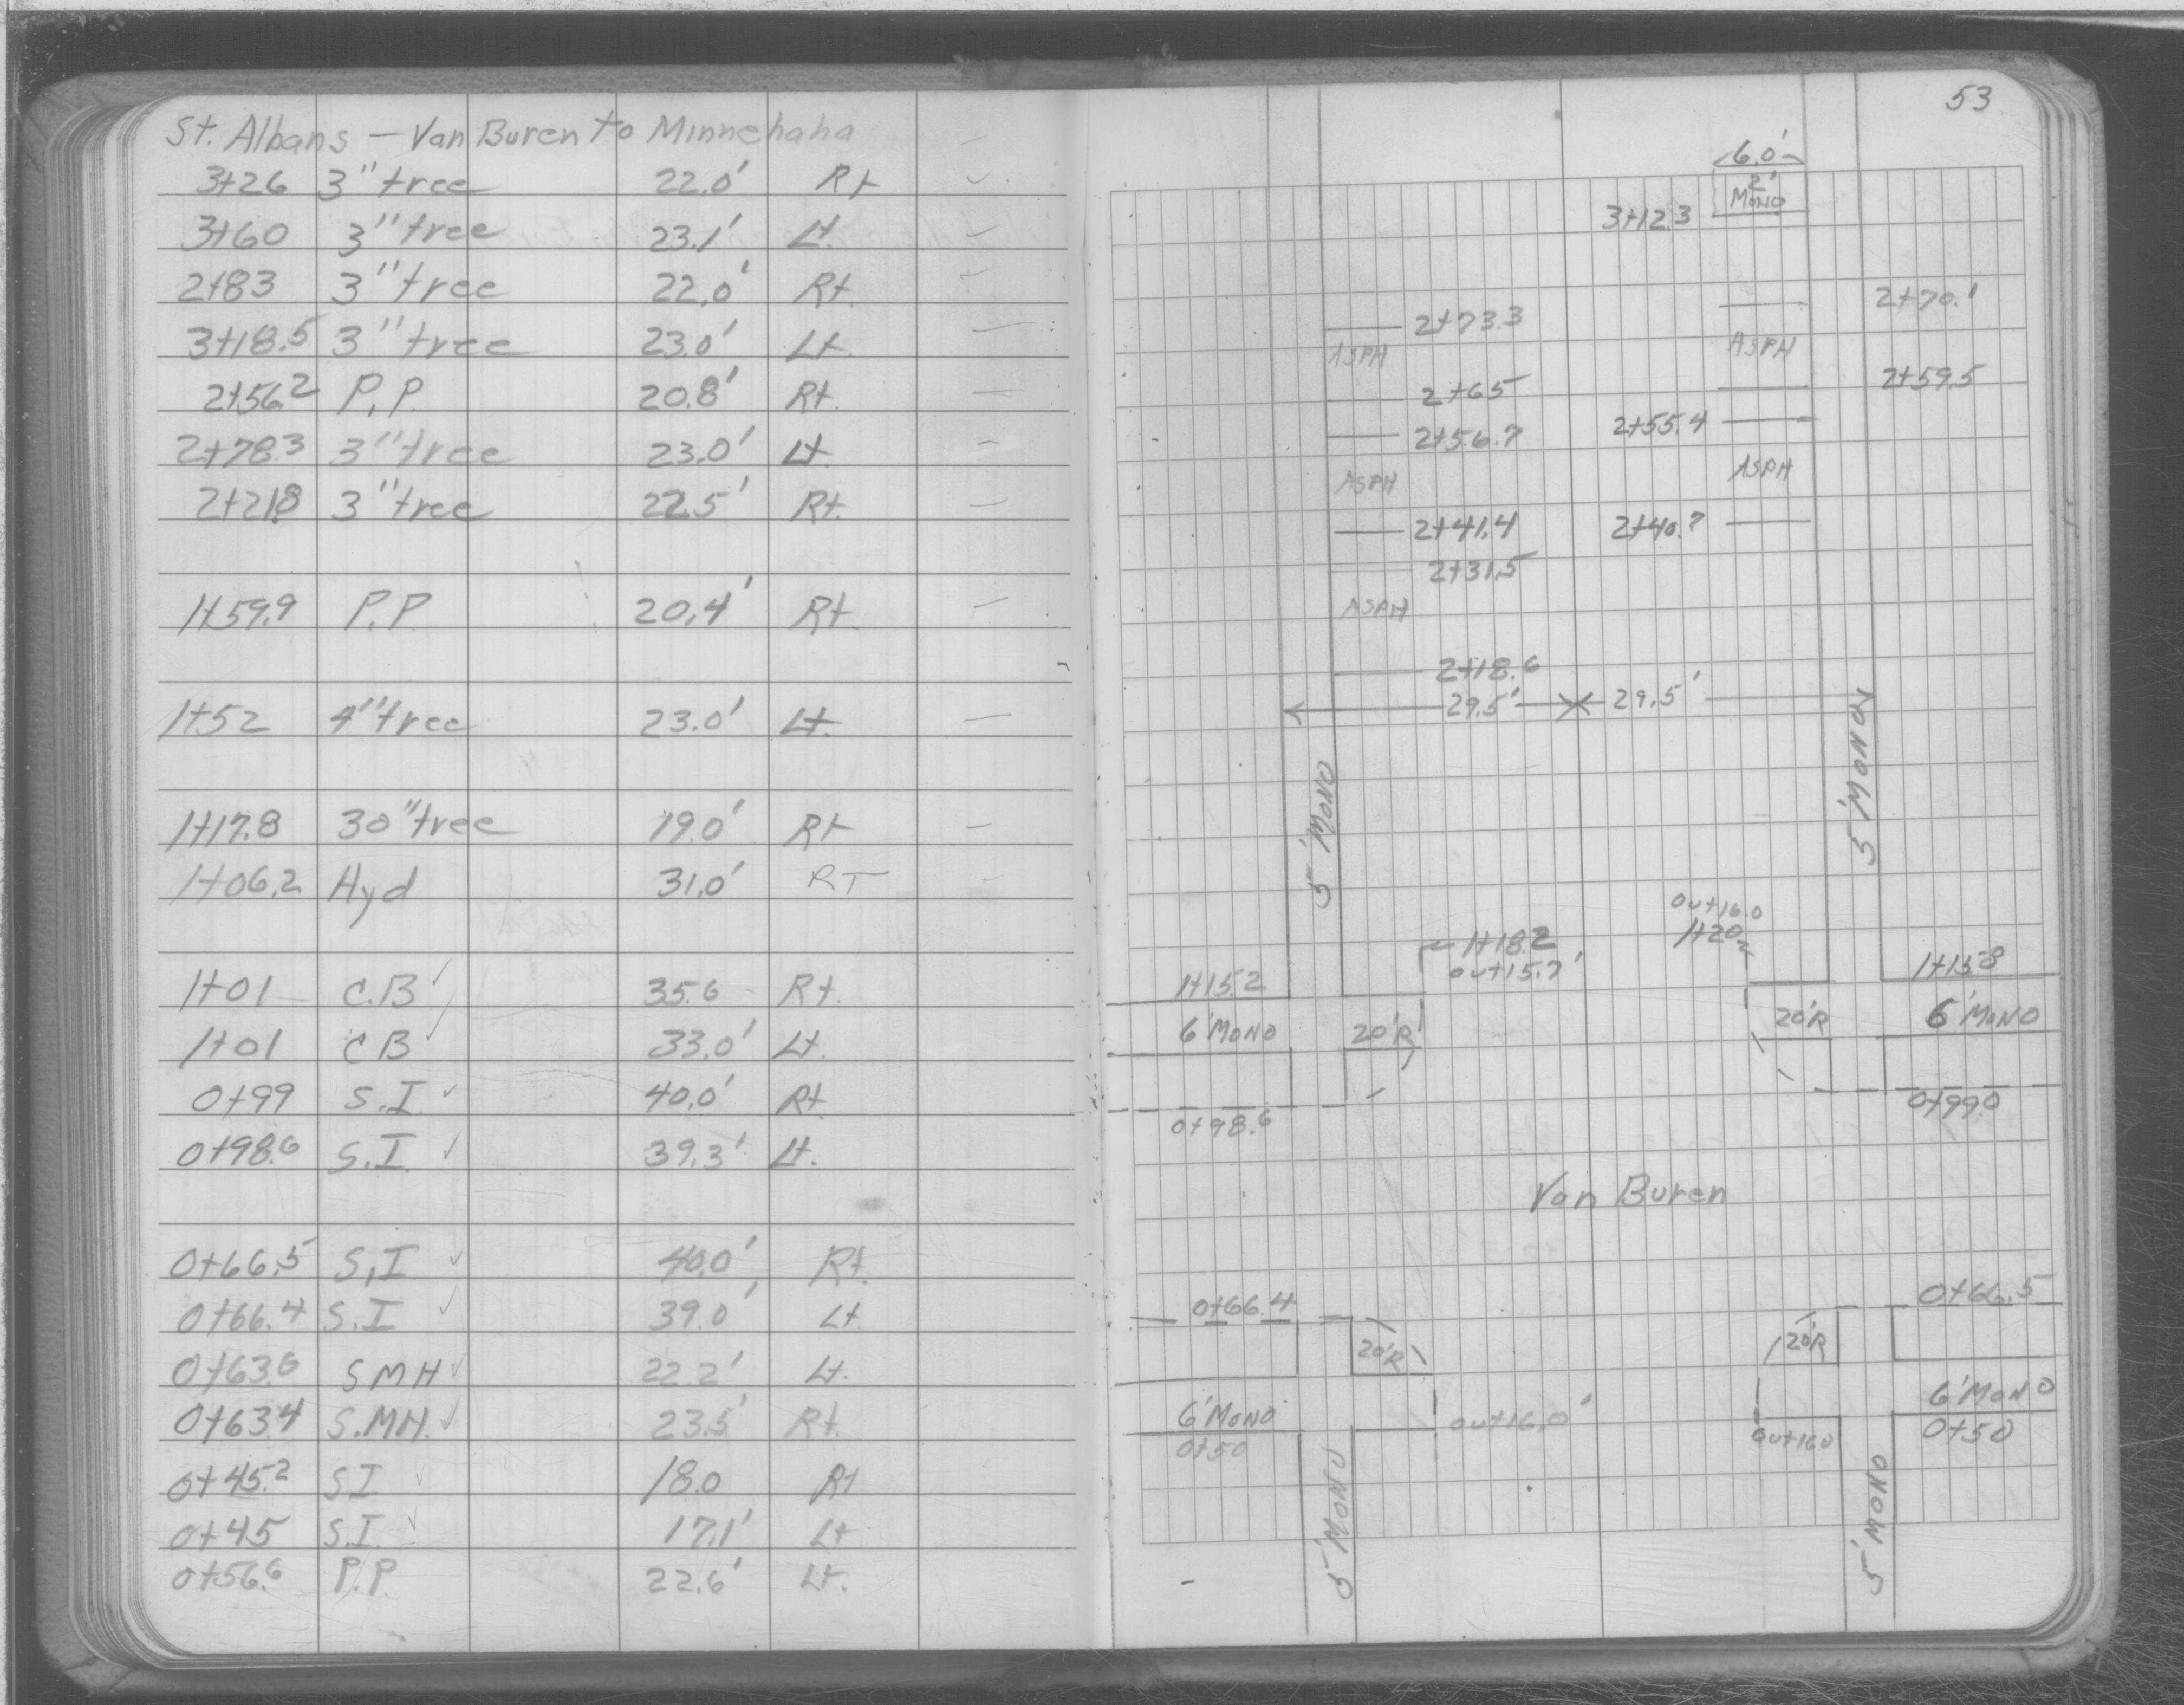 St. Albans — Van Buren to Minnehaha
3+26 3" tree 22.0' Rt
3+60 3" tree 23.1' Lt.
2+83 3" tree 22.0' Rt.
3+18.5 3" tree 23.0' Lt
2+56.2 P.P. 20.8' Rt.
2+78.3 3" tree 23.0' Lt.
2+21.8 3" tree 22.5' Rt.
1+59.9 P.P. 20.4' Rt.
1+52 4" tree 23.0' Lt.
1+17.8 30" tree 19.0' Rt
1+06.2 Hyd 31.0' RT
1+01 C.B ✓ 35.6 Rt.
1+01 CB ✓ 33.0' Lt.
0+99 S.I. ✓ 40.0' Rt.
0+98.6 S.I. ✓ 39.3' Lt.
0+66.5 S.I ✓ 40.0' Rt.
0+66.4 S.I ✓ 39.0' Lt
0+63.6 SMH ✓ 22.2' Lt.
0+63.4 S.MH. ✓ 23.5' Rt.
0+45.2 SI ✓ 18.0 Rt
0+45 S.I. ✓ 17.1' Lt
0+56.6 P.P. 22.6' Lt.
53
6.0'
2'
MONO
3+12.3
2+70.1
2+73.3
ASPH ASPH
2+59.5
2+65
2+55.4
2+56.7
ASPH ASPH
2+41.4 2+40.7
2+31.5
ASPH
2+18.6
29.5' 29.5'
5' MONO 5' MONO
out 16.0
1+20.2
1+18.2
out 15.7'
1+15.2 1+15.8
6' MONO 20'R 20'R 6' MONO
0+98.6 0+99.0
Van Buren
0+66.4 0+66.5
20'R 20'R
6' MONO out 16.0' 6' MONO
0+50 out 16.0 0+50
5' MONO 5' MONO